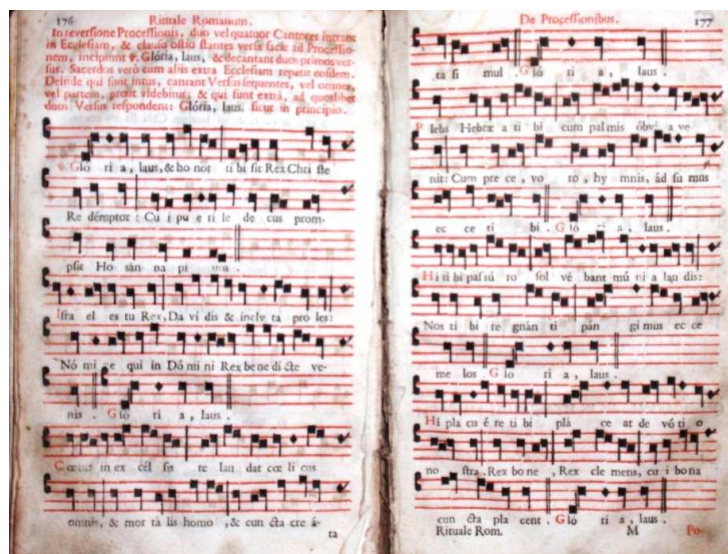 176 Rituale Romanum.
In reversione Processionis, duo vel quatuor Cantores intrant
in Ecclesiam, & clauso ostio stantes versa facie ad Processio-
nem, incipiunt ℣. Glória, laus, & decantant duos primos ver-
sus. Sacerdos verò cum aliis extra Ecclesiam repetit eosdem.
Deinde qui sunt intus, cantant Versus sequentes, vel omnes,
vel partem, prout videbitur; & qui sunt extra, ad quoslibet
duos Versus respondent: Glória, laus. sicut in principio.
Gló ri a, laus, & ho nór ti bi sit Rex Chri ste
Re démptor: Cu i pu e rí le de cus prom-
psit Ho sán na pi um.
Isra el es tu Rex, Da ví dis & ínclv ta pro les:
Nó mi ne qui in Dó mi ni Rex be ne dí cte ve-
nis. Gló ri a, laus.
Cœtus in ex cél sis te lau dat cœ li cus
omnis, & mor tá lis homo, & cun cta cre á-
ta
De Processionibus. 177
ta si mul. Gló ri a, laus.
Plebs Hebræ a ti bi cum pal mis óbvi a ve-
nit: Cum pre ce, vo to, hy mnis, ád su mus
ec ce ti bi. Gló ri a, laus.
Hi ti bi pas sú ro sol vé bant mú ni a lau dis:
Nos ti bi re gnán ti pán gi mus ec ce
me los. Gló ri a, laus.
Hi pla cu é re ti bi plá ce at de vó ti o
no stra, Rex bo ne, Rex cle mens, cu i bona
cun cta pla cent. Gló ri a, laus.
Rituale Rom. M Po-